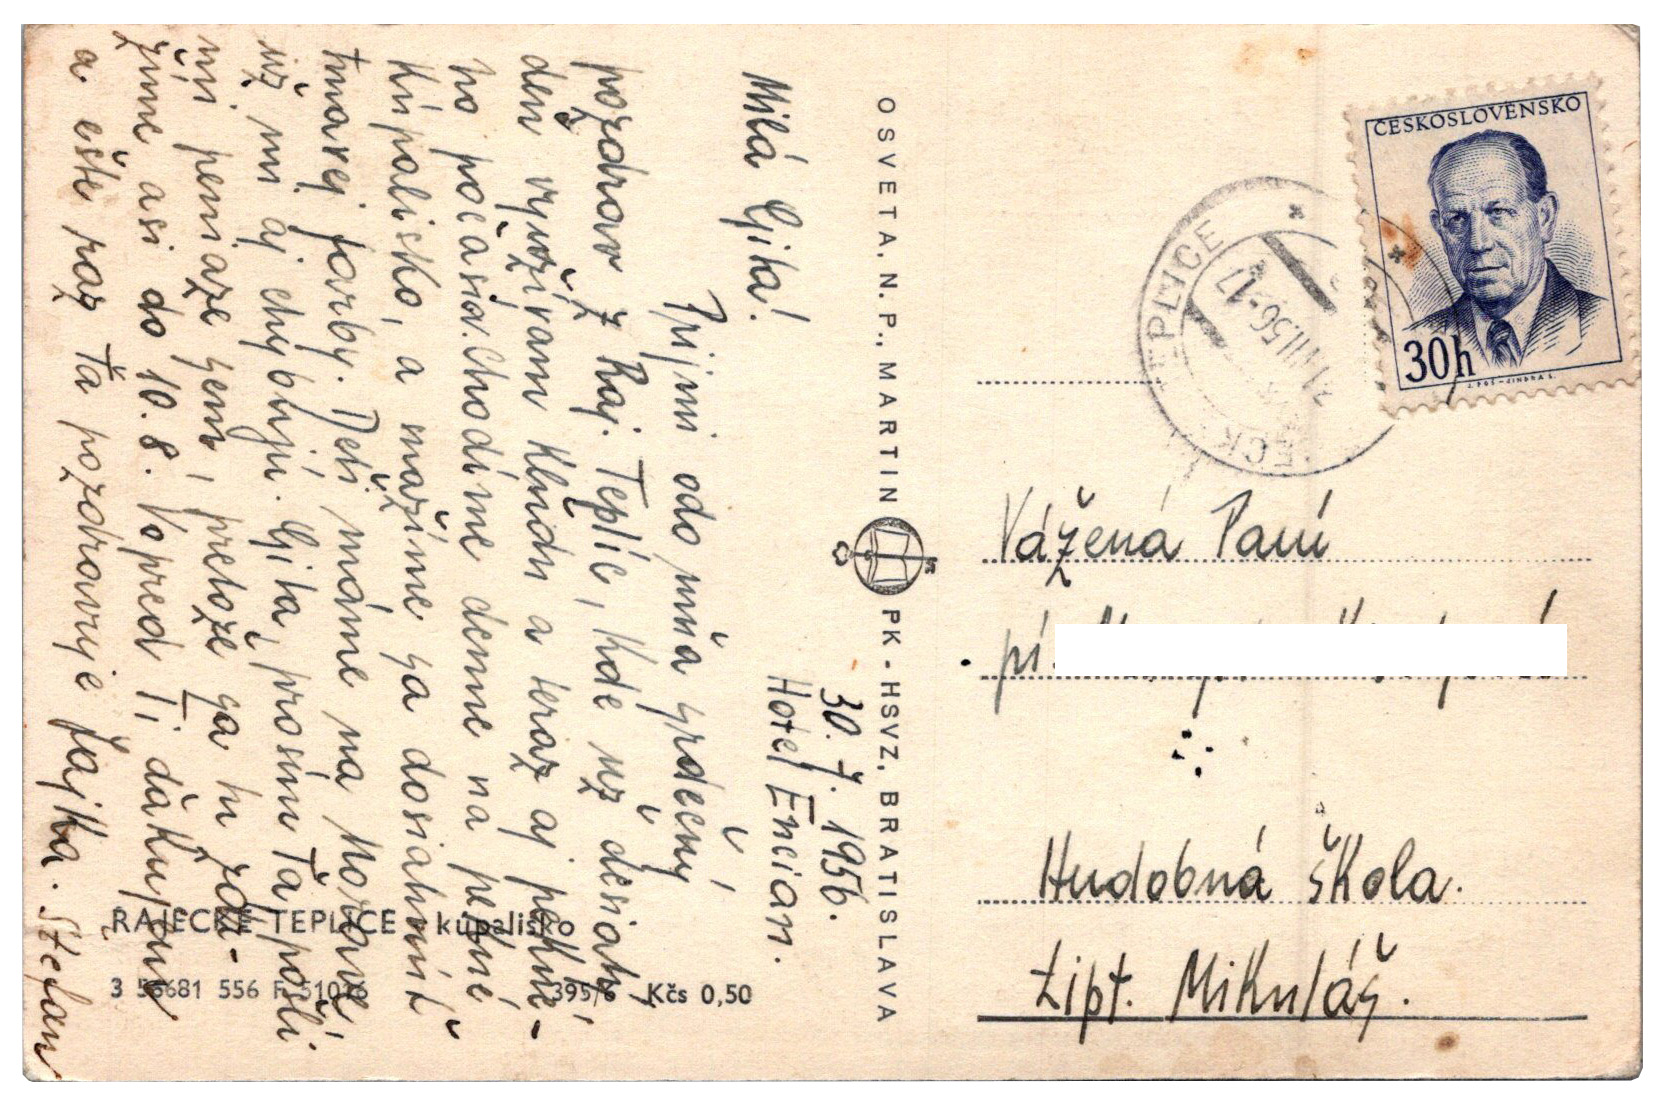 30. 7. 1956.
Hotel Encian.
Milá Gita!
Prijmi odo mňa srdečný
pozdrav z Raj. Teplíc, kde už desiaty
deň vyuzívam kľudu a teraz aj pekné-
ho počasia. Chodíme denne na pekné
kúpalisko, a mažíme sa dosiahnuť
tmavej farby. Deti máme na Morave,
už mi aj chybujú. Gita, prosím Ťa pošli
mi peniaze sem, pretože sa tu zdr-
žíme asi do 10. 8. Vopred Ti ďakujem
a ešte raz Ťa pozdravuje Fajka. Štefan
RAJECKÉ TEPLICE - kúpalisko
3 56681 556 F 51016 395/6 Kčs 0,50
OSVETA, N. P., MARTIN PK - HSVZ, BRATISLAVA
ČESKOSLOVENSKO
30h
J. POŠ - JINDRA S.
TEPLICE
VII.56-17
Vážená Paní
pí.
Hudobná škola.
Lipt. Mikuláš.